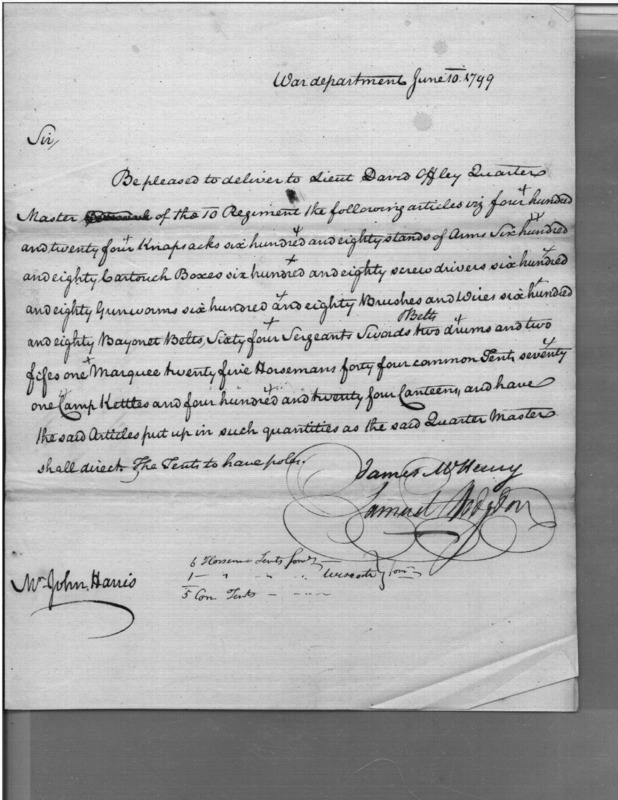 War department June 10. 1799
Sir,
Be pleased to deliver to Lieut David Offley Quarter
Master of the 10 Regiment the following articles viz four hundred
and twenty four Knapsacks six hundred and eighty stands of Arms Six hundred
and eighty Cartouch Boxes six hundred and eighty screw drivers six hundred
and eighty Gunworms six hundred and eighty Brushes and Wires six hundred
Belts
and eighty Bayonet Belts, Sixty four Sergeants Swords two drums and two
fifes one Marquee twenty five Horsemans forty four common Tents seventy
one Camp Kettles and four hundred and twenty four Canteens, and have
the said Articles put up in such quantities as the said Quarter Master
shall direct. The Tents to have poles.
James McHenry
Samuel Hodgdon
6 Horseman Tents
1 -- " " "
5 Com Tents - - - -
Mr John, Harris